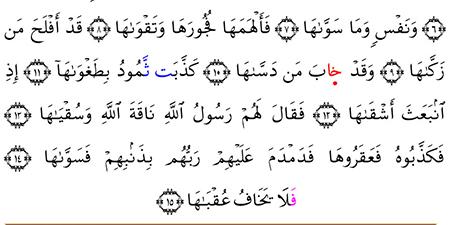 ﴿٦﴾ وَنَفْسٍ وَمَا سَوَّىٰهَا ﴿٧﴾ فَأَلْهَمَهَا فُجُورَهَا وَتَقْوَىٰهَا ﴿٨﴾ قَدْ أَفْلَحَ مَن
زَكَّىٰهَا ﴿٩﴾ وَقَدْ خَابَ مَن دَسَّىٰهَا ﴿١٠﴾ كَذَّبَت ثَّمُودُ بِطَغْوَىٰهَآ ﴿١١﴾ إِذِ
ٱنۢبَعَثَ أَشْقَىٰهَا ﴿١٢﴾ فَقَالَ لَهُمْ رَسُولُ ٱللَّهِ نَاقَةَ ٱللَّهِ وَسُقْيَـٰهَا ﴿١٣﴾
فَكَذَّبُوهُ فَعَقَرُوهَا فَدَمْدَمَ عَلَيْهِمْ رَبُّهُم بِذَنۢبِهِمْ فَسَوَّىٰهَا ﴿١٤﴾
فَلَا يَخَافُ عُقْبَـٰهَا ﴿١٥﴾